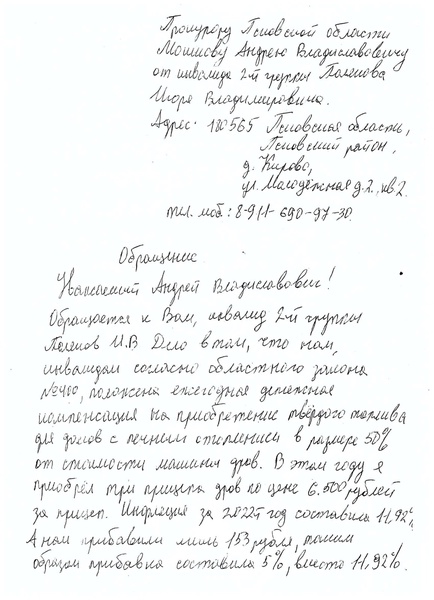 Прокурору Псковской области
Мошкову Андрею Владиславовичу
от инвалида 2-й группы Паленова
Игоря Владимировича.
Адрес: 180565 Псковская область,
Псковский район,
д. Кирово,
ул. Молодёжная д.2, кв.2.
тел. моб.: 8-911-690-97-30.
Обращение.
Уважаемый Андрей Владиславович!
Обращается к Вам, инвалид 2-й группы
Паленов И.В Дело в том, что нам,
инвалидам согласно областного закона
№400, положена ежегодная денежная
компенсация на приобретение твёрдого топлива
для домов с печным отоплением в размере 50%
от стоимости машины дров. В этом году я
приобрёл три прицепа дров по цене 6.500 рублей
за прицеп. Инфляция за 2022й год составила 11,92%.
А нам прибавили лишь 153 рубля, таким
образом прибавка составила 5%, вместо 11,92%.